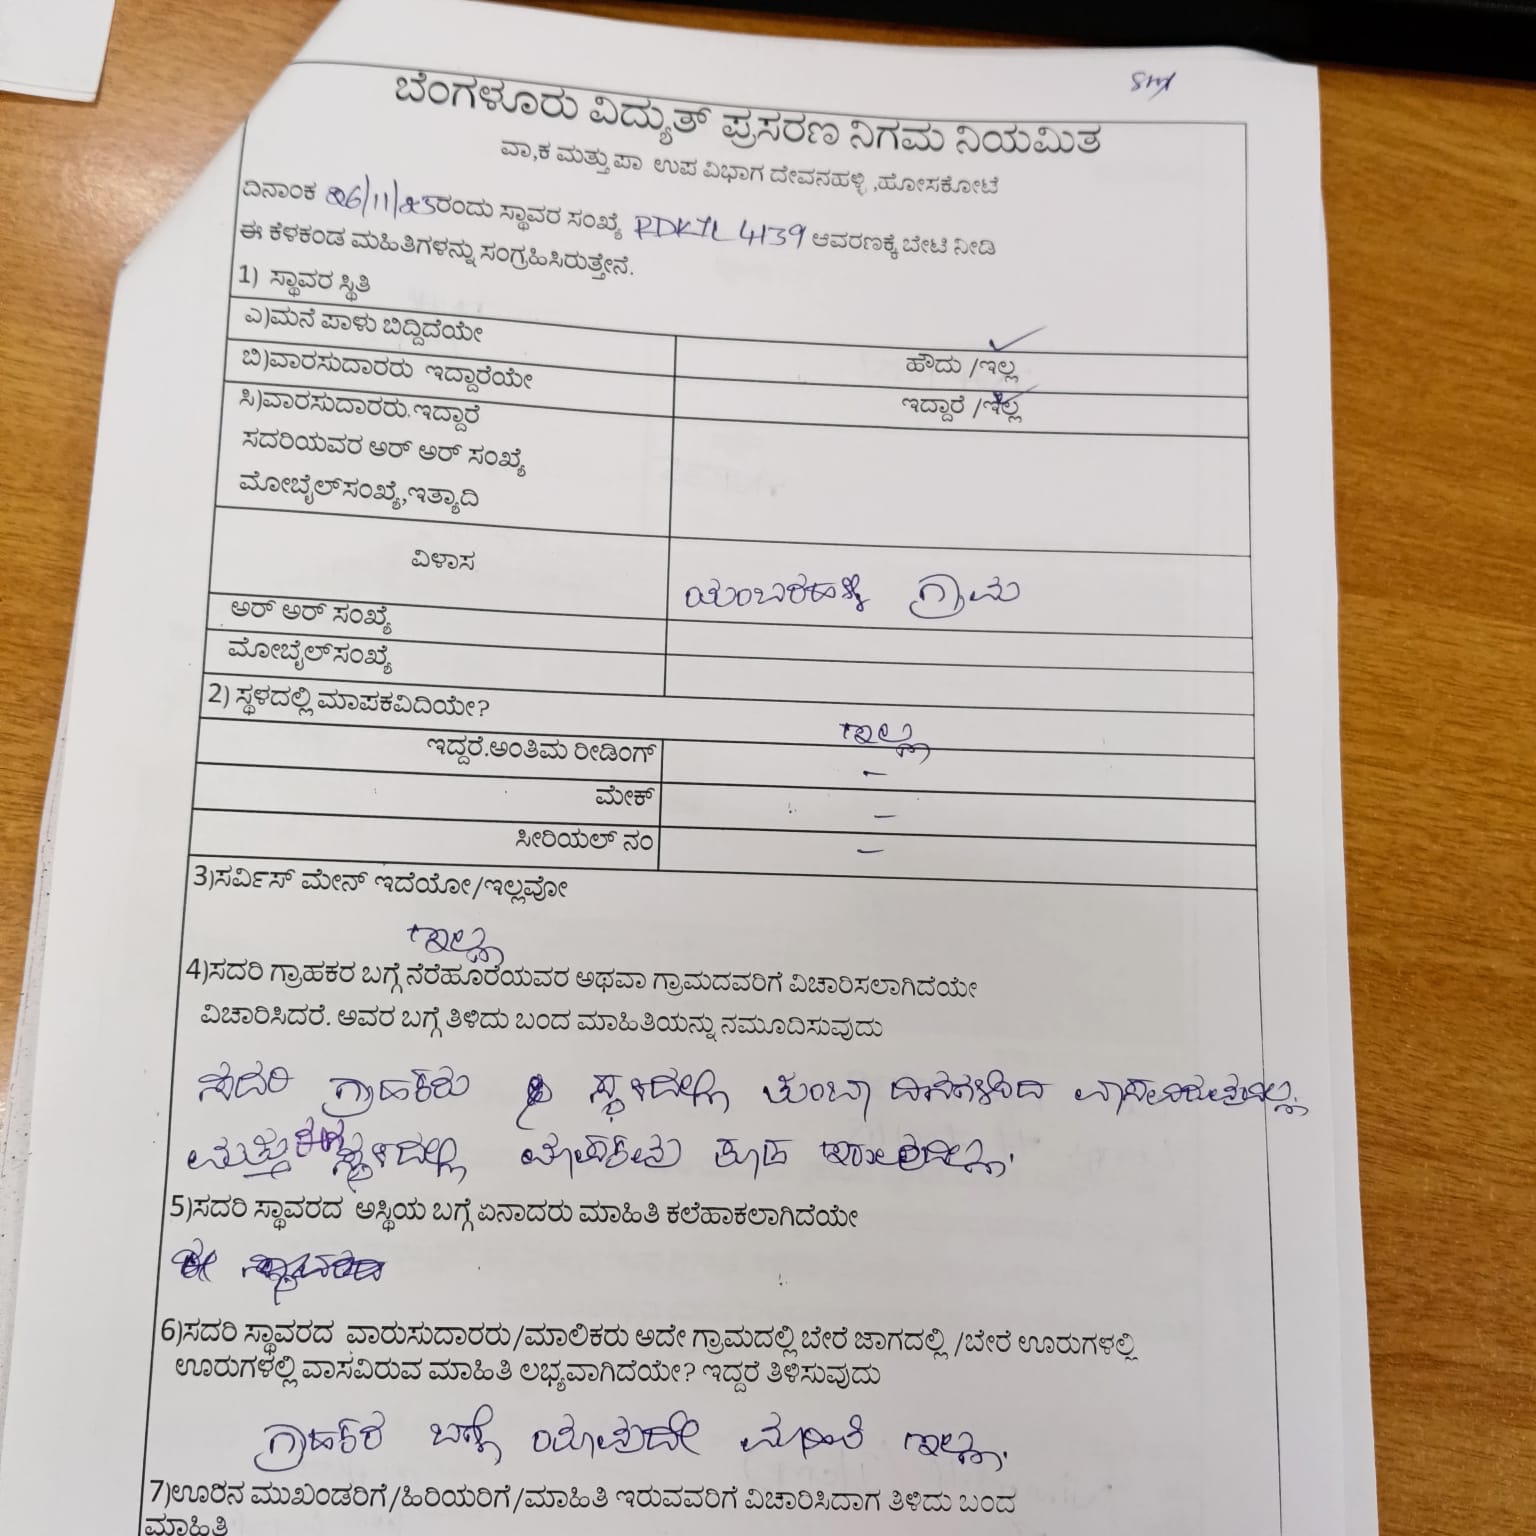 ಬೆಂಗಳೂರು ವಿದ್ಯುತ್ ಪ್ರಸರಣ ನಿಗಮ ನಿಯಮಿತ
ವಾ,ಕ ಮತ್ತು ಪಾ ಉಪ ವಿಭಾಗ ದೇವನಹಳ್ಳಿ ,ಹೋಸಕೋಟೆ
ದಿನಾಂಕ 26/11/25ರಂದು ಸ್ಥಾವರ ಸಂಖ್ಯೆ RDKJL 4139 ಆವರಣಕ್ಕೆ ಬೇಟಿ ನೀಡಿ
ಈ ಕೆಳಕಂಡ ಮಹಿತಿಗಳನ್ನು ಸಂಗ್ರಹಿಸಿರುತ್ತೇನೆ.
1) ಸ್ಥಾವರ ಸ್ಥಿತಿ
ಎ)ಮನೆ ಪಾಳು ಬಿದ್ದಿದೆಯೇ ಹೌದು /ಇಲ್ಲ
ಬಿ)ವಾರಸುದಾರರು ಇದ್ದಾರೆಯೇ ಇದ್ದಾರೆ /ಇಲ್ಲ
ಸಿ)ವಾರಸುದಾರರು.ಇದ್ದಾರೆ
ಸದರಿಯವರ ಅರ್ ಅರ್ ಸಂಖ್ಯೆ
ಮೋಬೈಲ್‌ಸಂಖ್ಯೆ,ಇತ್ಯಾದಿ
ವಿಳಾಸ ಯಂಬರಹಳ್ಳಿ ಗ್ರಾಮ
ಅರ್ ಅರ್ ಸಂಖ್ಯೆ
ಮೋಬೈಲ್‌ಸಂಖ್ಯೆ
2) ಸ್ಥಳದಲ್ಲಿ ಮಾಪಕವಿದಿಯೇ? ಇಲ್ಲ
ಇದ್ದರೆ.ಅಂತಿಮ ರೀಡಿಂಗ್ –
ಮೇಕ್ –
ಸೀರಿಯಲ್ ನಂ –
3)ಸರ್ವಿಸ್ ಮೇನ್ ಇದೆಯೋ/ಇಲ್ಲವೋ
ಇಲ್ಲ
4)ಸದರಿ ಗ್ರಾಹಕರ ಬಗ್ಗೆ ನೆರೆಹೂರೆಯವರ ಅಥವಾ ಗ್ರಾಮದವರಿಗೆ ವಿಚಾರಿಸಲಾಗಿದೆಯೇ
ವಿಚಾರಿಸಿದರೆ. ಅವರ ಬಗ್ಗೆ ತಿಳಿದು ಬಂದ ಮಾಹಿತಿಯನ್ನು ನಮೂದಿಸುವುದು
ಸದರಿ ಗ್ರಾಹಕರು ಸ್ಥಳದಲ್ಲಿ ತುಂಬಾ ದಿನಗಳಿಂದ ವಾಸವಿರುವುದಿಲ್ಲ.
ಮತ್ತು ಸ್ಥಳದಲ್ಲಿ ಮಾಪಕವು ಕೂಡ ಇರುವುದಿಲ್ಲ.
5)ಸದರಿ ಸ್ಥಾವರದ ಅಸ್ಥಿಯ ಬಗ್ಗೆ ಏನಾದರು ಮಾಹಿತಿ ಕಲೆಹಾಕಲಾಗಿದೆಯೇ
6)ಸದರಿ ಸ್ಥಾವರದ ವಾರುಸುದಾರರು/ಮಾಲಿಕರು ಅದೇ ಗ್ರಾಮದಲ್ಲಿ ಬೇರೆ ಜಾಗದಲ್ಲಿ /ಬೇರೆ ಊರುಗಳಲ್ಲಿ
ಊರುಗಳಲ್ಲಿ ವಾಸವಿರುವ ಮಾಹಿತಿ ಲಭ್ಯವಾಗಿದೆಯೇ? ಇದ್ದರೆ ತಿಳಿಸುವುದು
ಗ್ರಾಹಕರ ಬಗ್ಗೆ ಯಾವುದೇ ಮಾಹಿತಿ ಇಲ್ಲ.
7)ಊರಿನ ಮುಖಂಡರಿಗೆ/ಹಿರಿಯರಿಗೆ/ಮಾಹಿತಿ ಇರುವವರಿಗೆ ವಿಚಾರಿಸಿದಾಗ ತಿಳಿದು ಬಂದ
ಮಾಹಿತಿ